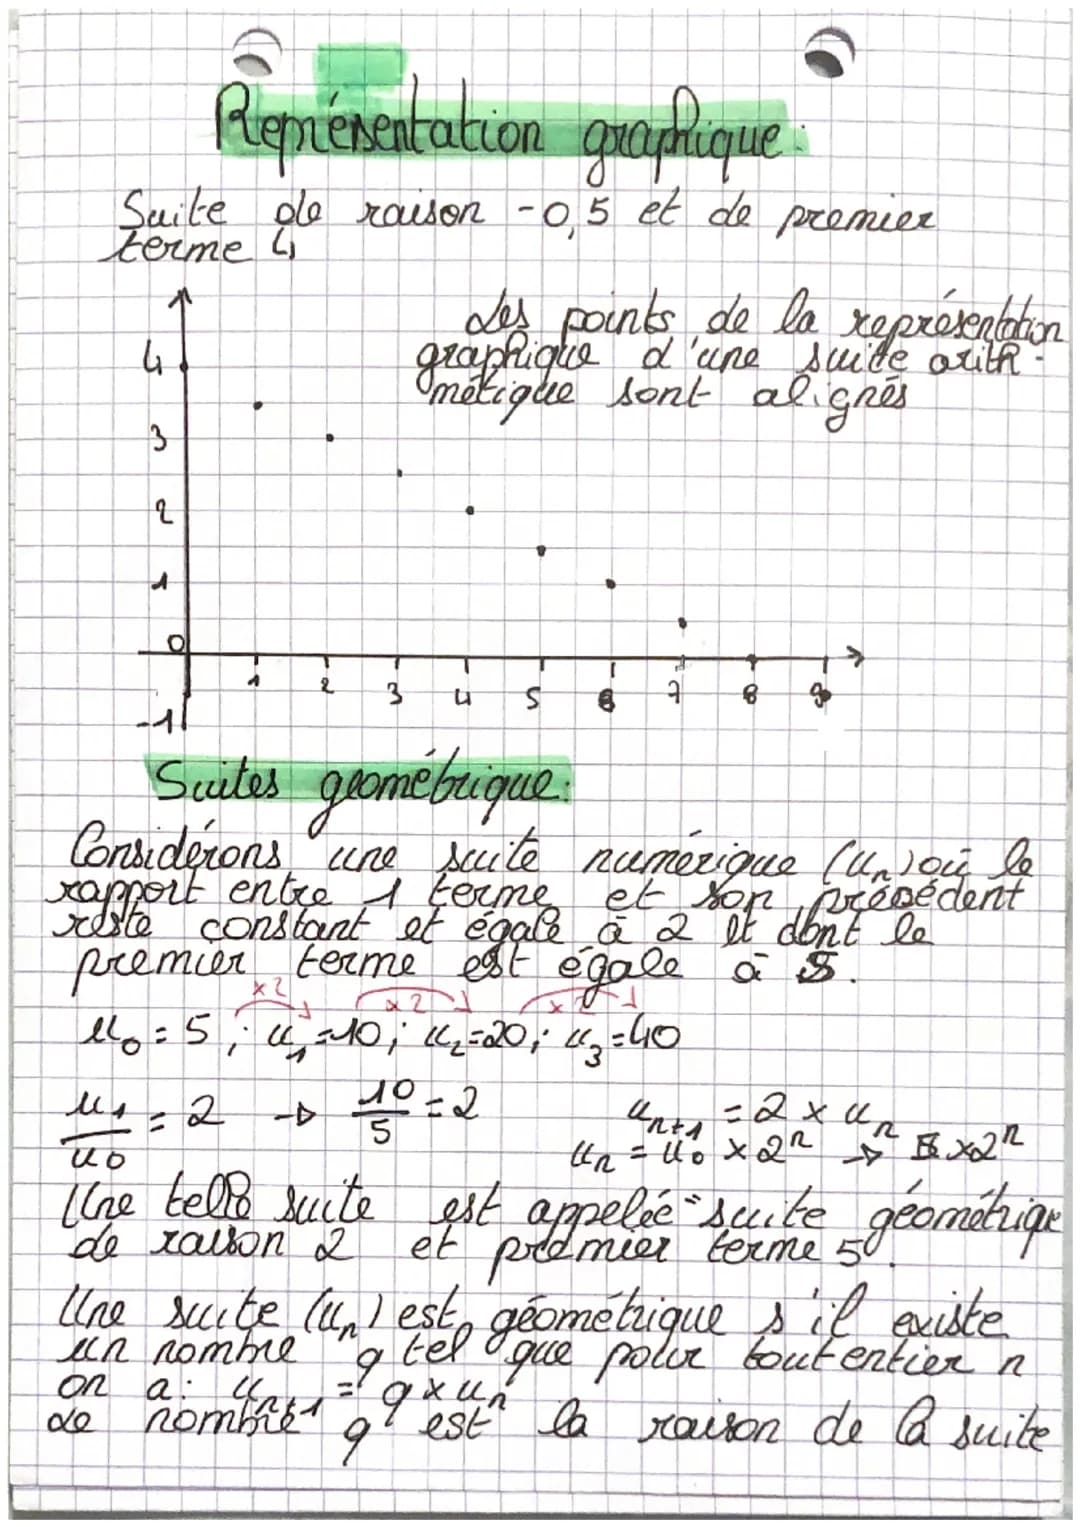 Représentation graphique :
Suite de raison -0,5 et de premier
terme 4
Les points de la représentation
graphique d'une suite arith-
métique sont alignés
4
3
2
1
0
-1
1 2 3 4 5 6 7 8 9
Suites géométrique :
Considérons une suite numérique (un) où le
rapport entre 1 terme et son précédent
reste constant et égale à 2 et dont le
premier terme est égale à 5.
×2 ×2 ×2
u0 = 5 ; u1 = 10 ; u2 = 20 ; u3 = 40
u1/u0 = 2 → 10/5 = 2
un+1 = 2 × un
un = u0 × 2^n → 5 × 2^n
Une telle suite est appelée suite géométrique
de raison 2 et premier terme 5.
Une suite (un) est géométrique s'il existe
un nombre q tel que pour tout entier n
on a : un+1 = q × un
Le nombre q est la raison de la suite